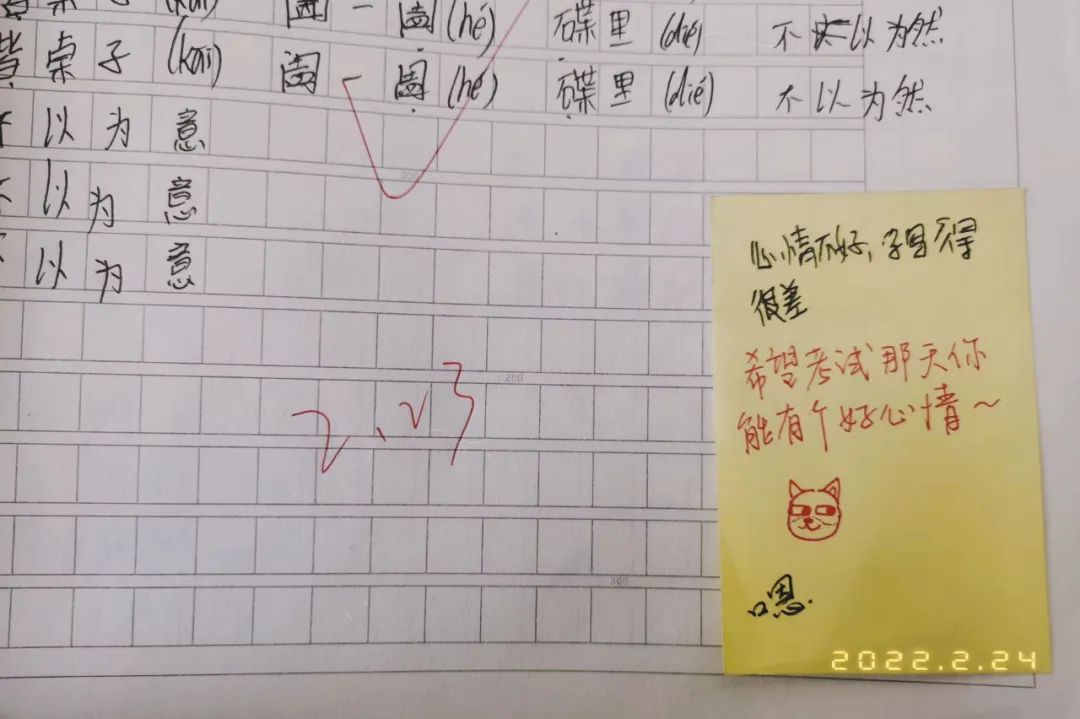 桌子 (kāi) 一 (hé) 碟里 (dié) 不以为然
桌子 (kāi) 一 (hé) 碟里 (dié) 不以为然
以为意
以为意
以为意
200
250
300
2、23
心情不好,字写得
很差
希望考试那天你
能有个好心情~
嗯.
2022.2.24